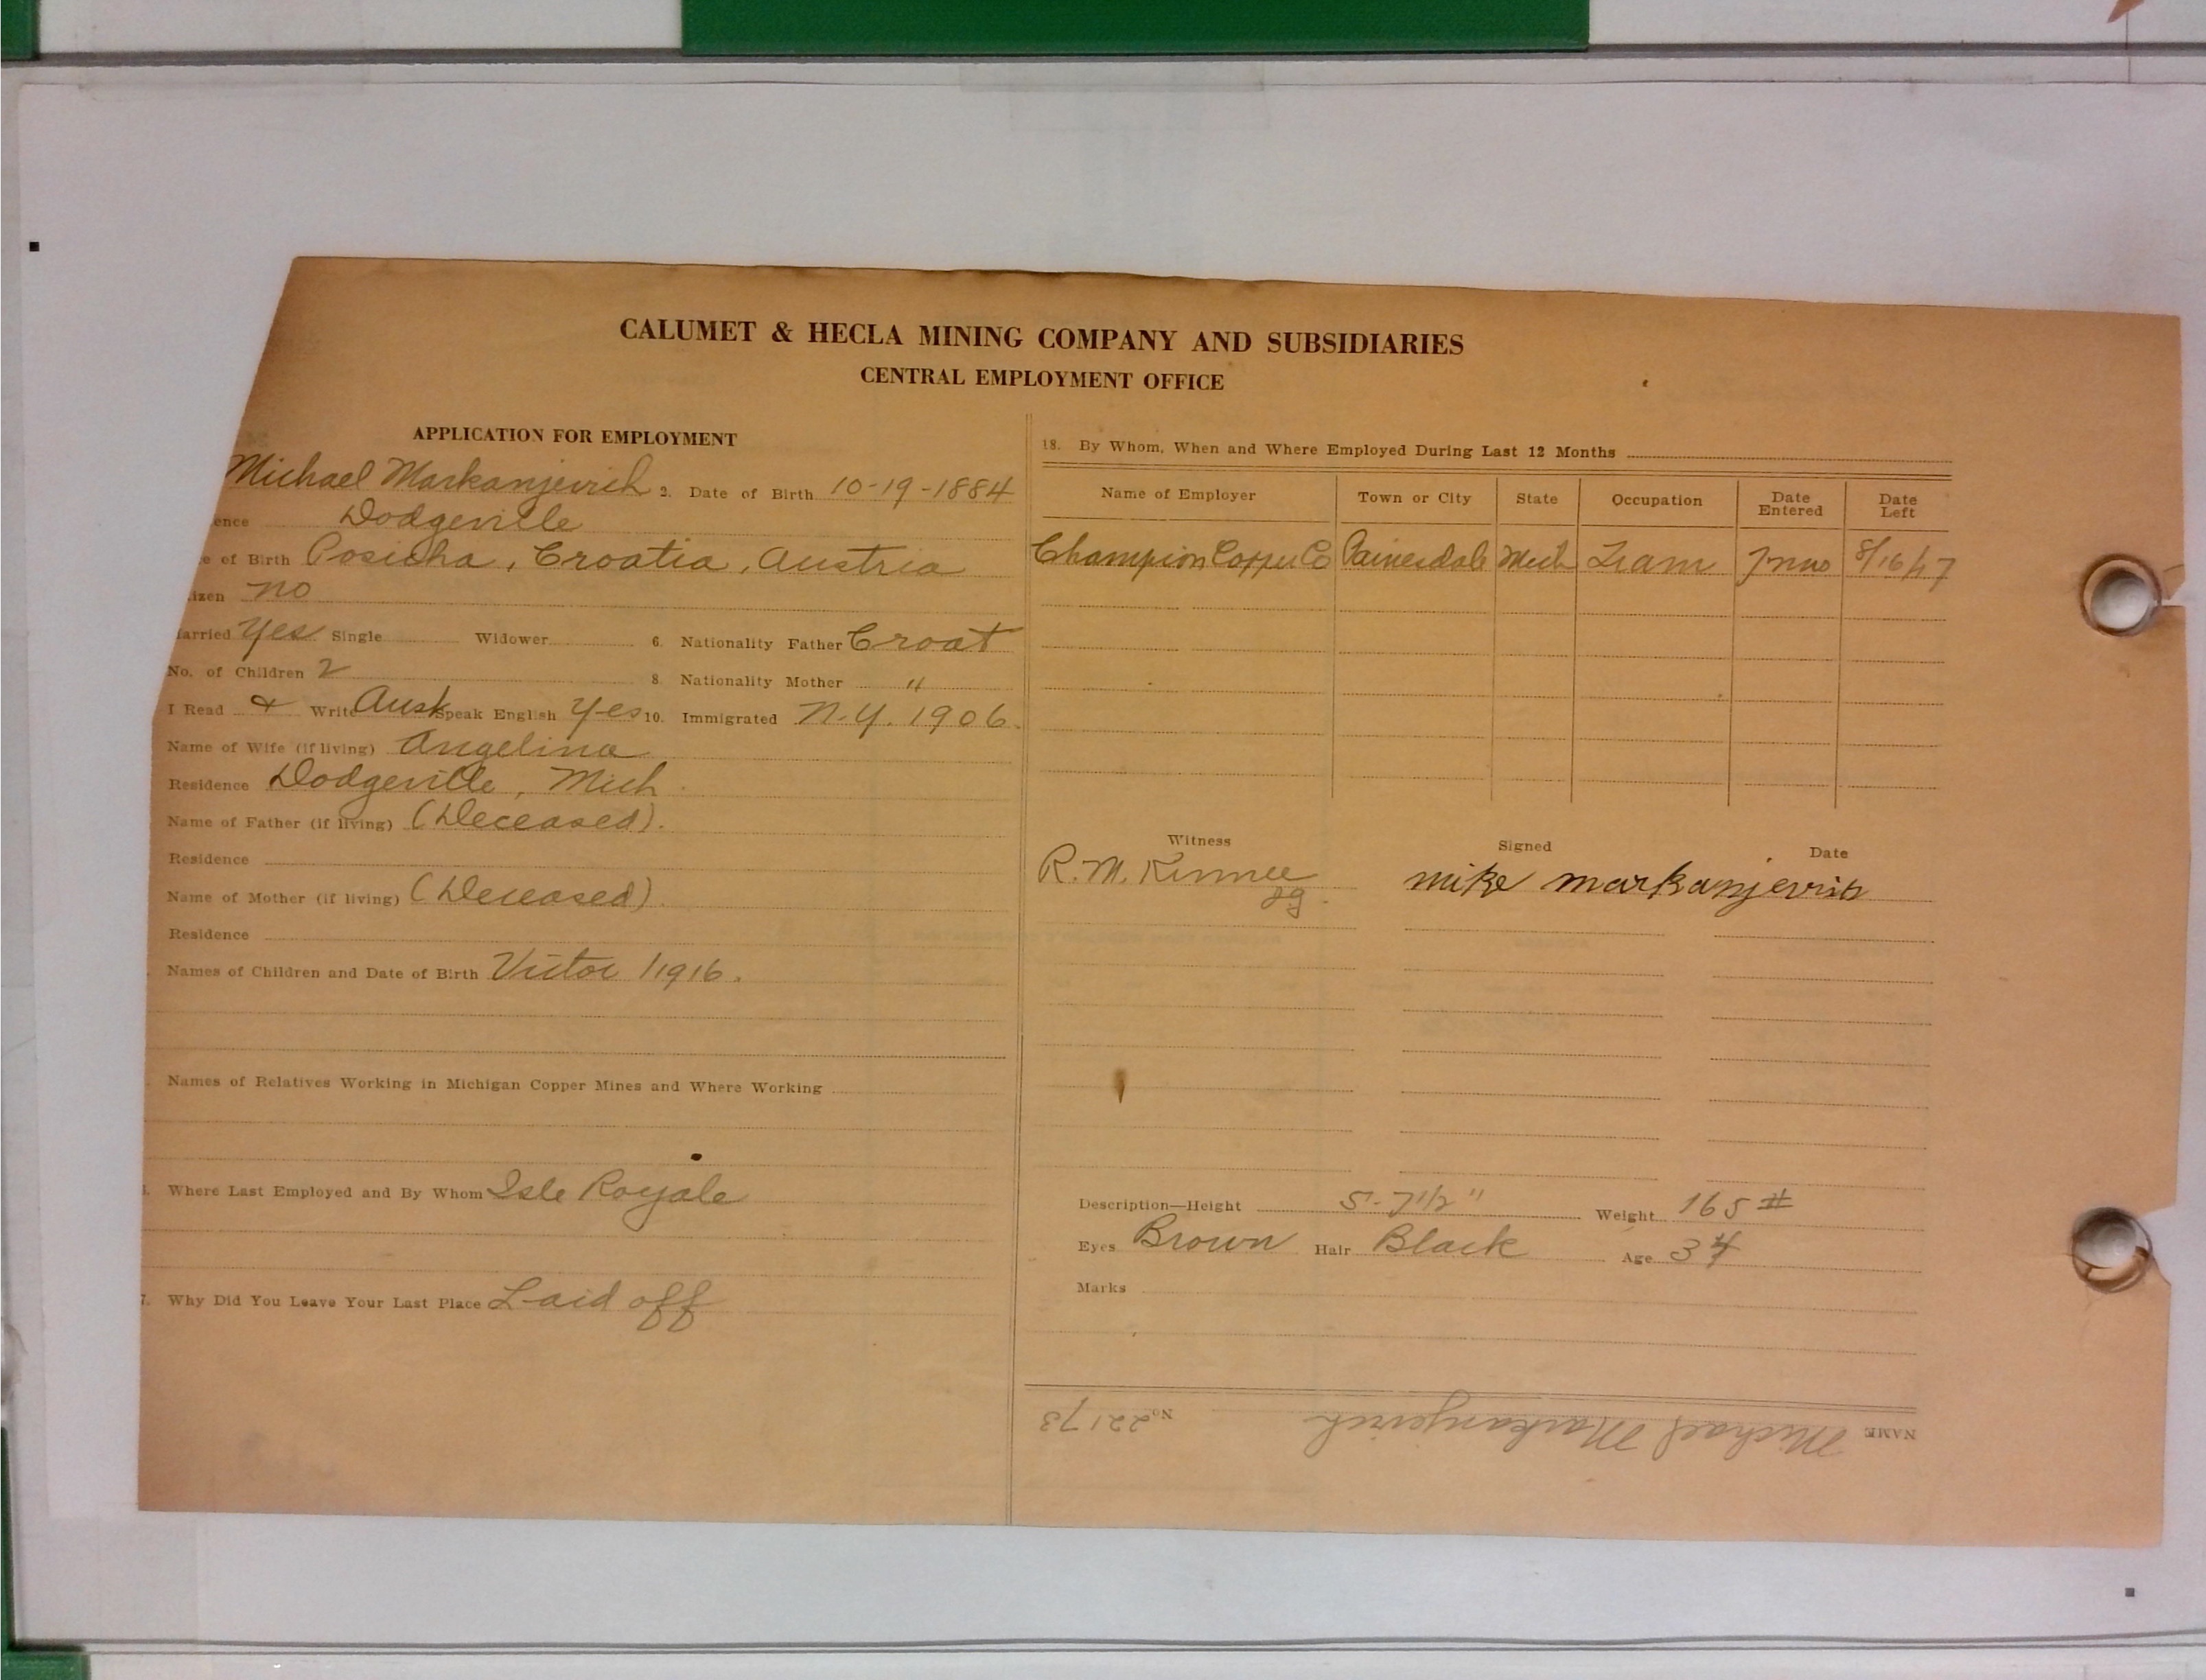 CALUMET & HECLA MINING COMPANY AND SUBSIDIARIES
CENTRAL EMPLOYMENT OFFICE
APPLICATION FOR EMPLOYMENT
Michael Markanjevich 2. Date of Birth 10-19-1884
ence Dodgeville
e of Birth Posicha, Croatia, Austria
izen no
arried Yes Single Widower 6. Nationality Father Croat
No. of Children 2 8. Nationality Mother "
I Read & Write Aust Speak English Yes 10. Immigrated N.Y. 1906.
Name of Wife (if living) Angelina
Residence Dodgeville, Mich.
Name of Father (if living) (Deceased).
Residence
Name of Mother (if living) (Deceased).
Residence
Names of Children and Date of Birth Victor 1916.
Names of Relatives Working in Michigan Copper Mines and Where Working
Where Last Employed and By Whom Isle Royale
7. Why Did You Leave Your Last Place Laid off
18. By Whom, When and Where Employed During Last 12 Months
Name of Employer Town or City State Occupation Date Entered Date Left
Champion Copper Co Painesdale Mich Tram 7 mos 8/16/17
Witness Signed Date
R. M. mike markanjevich
Description—Height 5'-7 1/2" Weight 165 #
Eyes Brown Hair Black Age 34
Marks
NAME Michael Markanjevich No. 22173